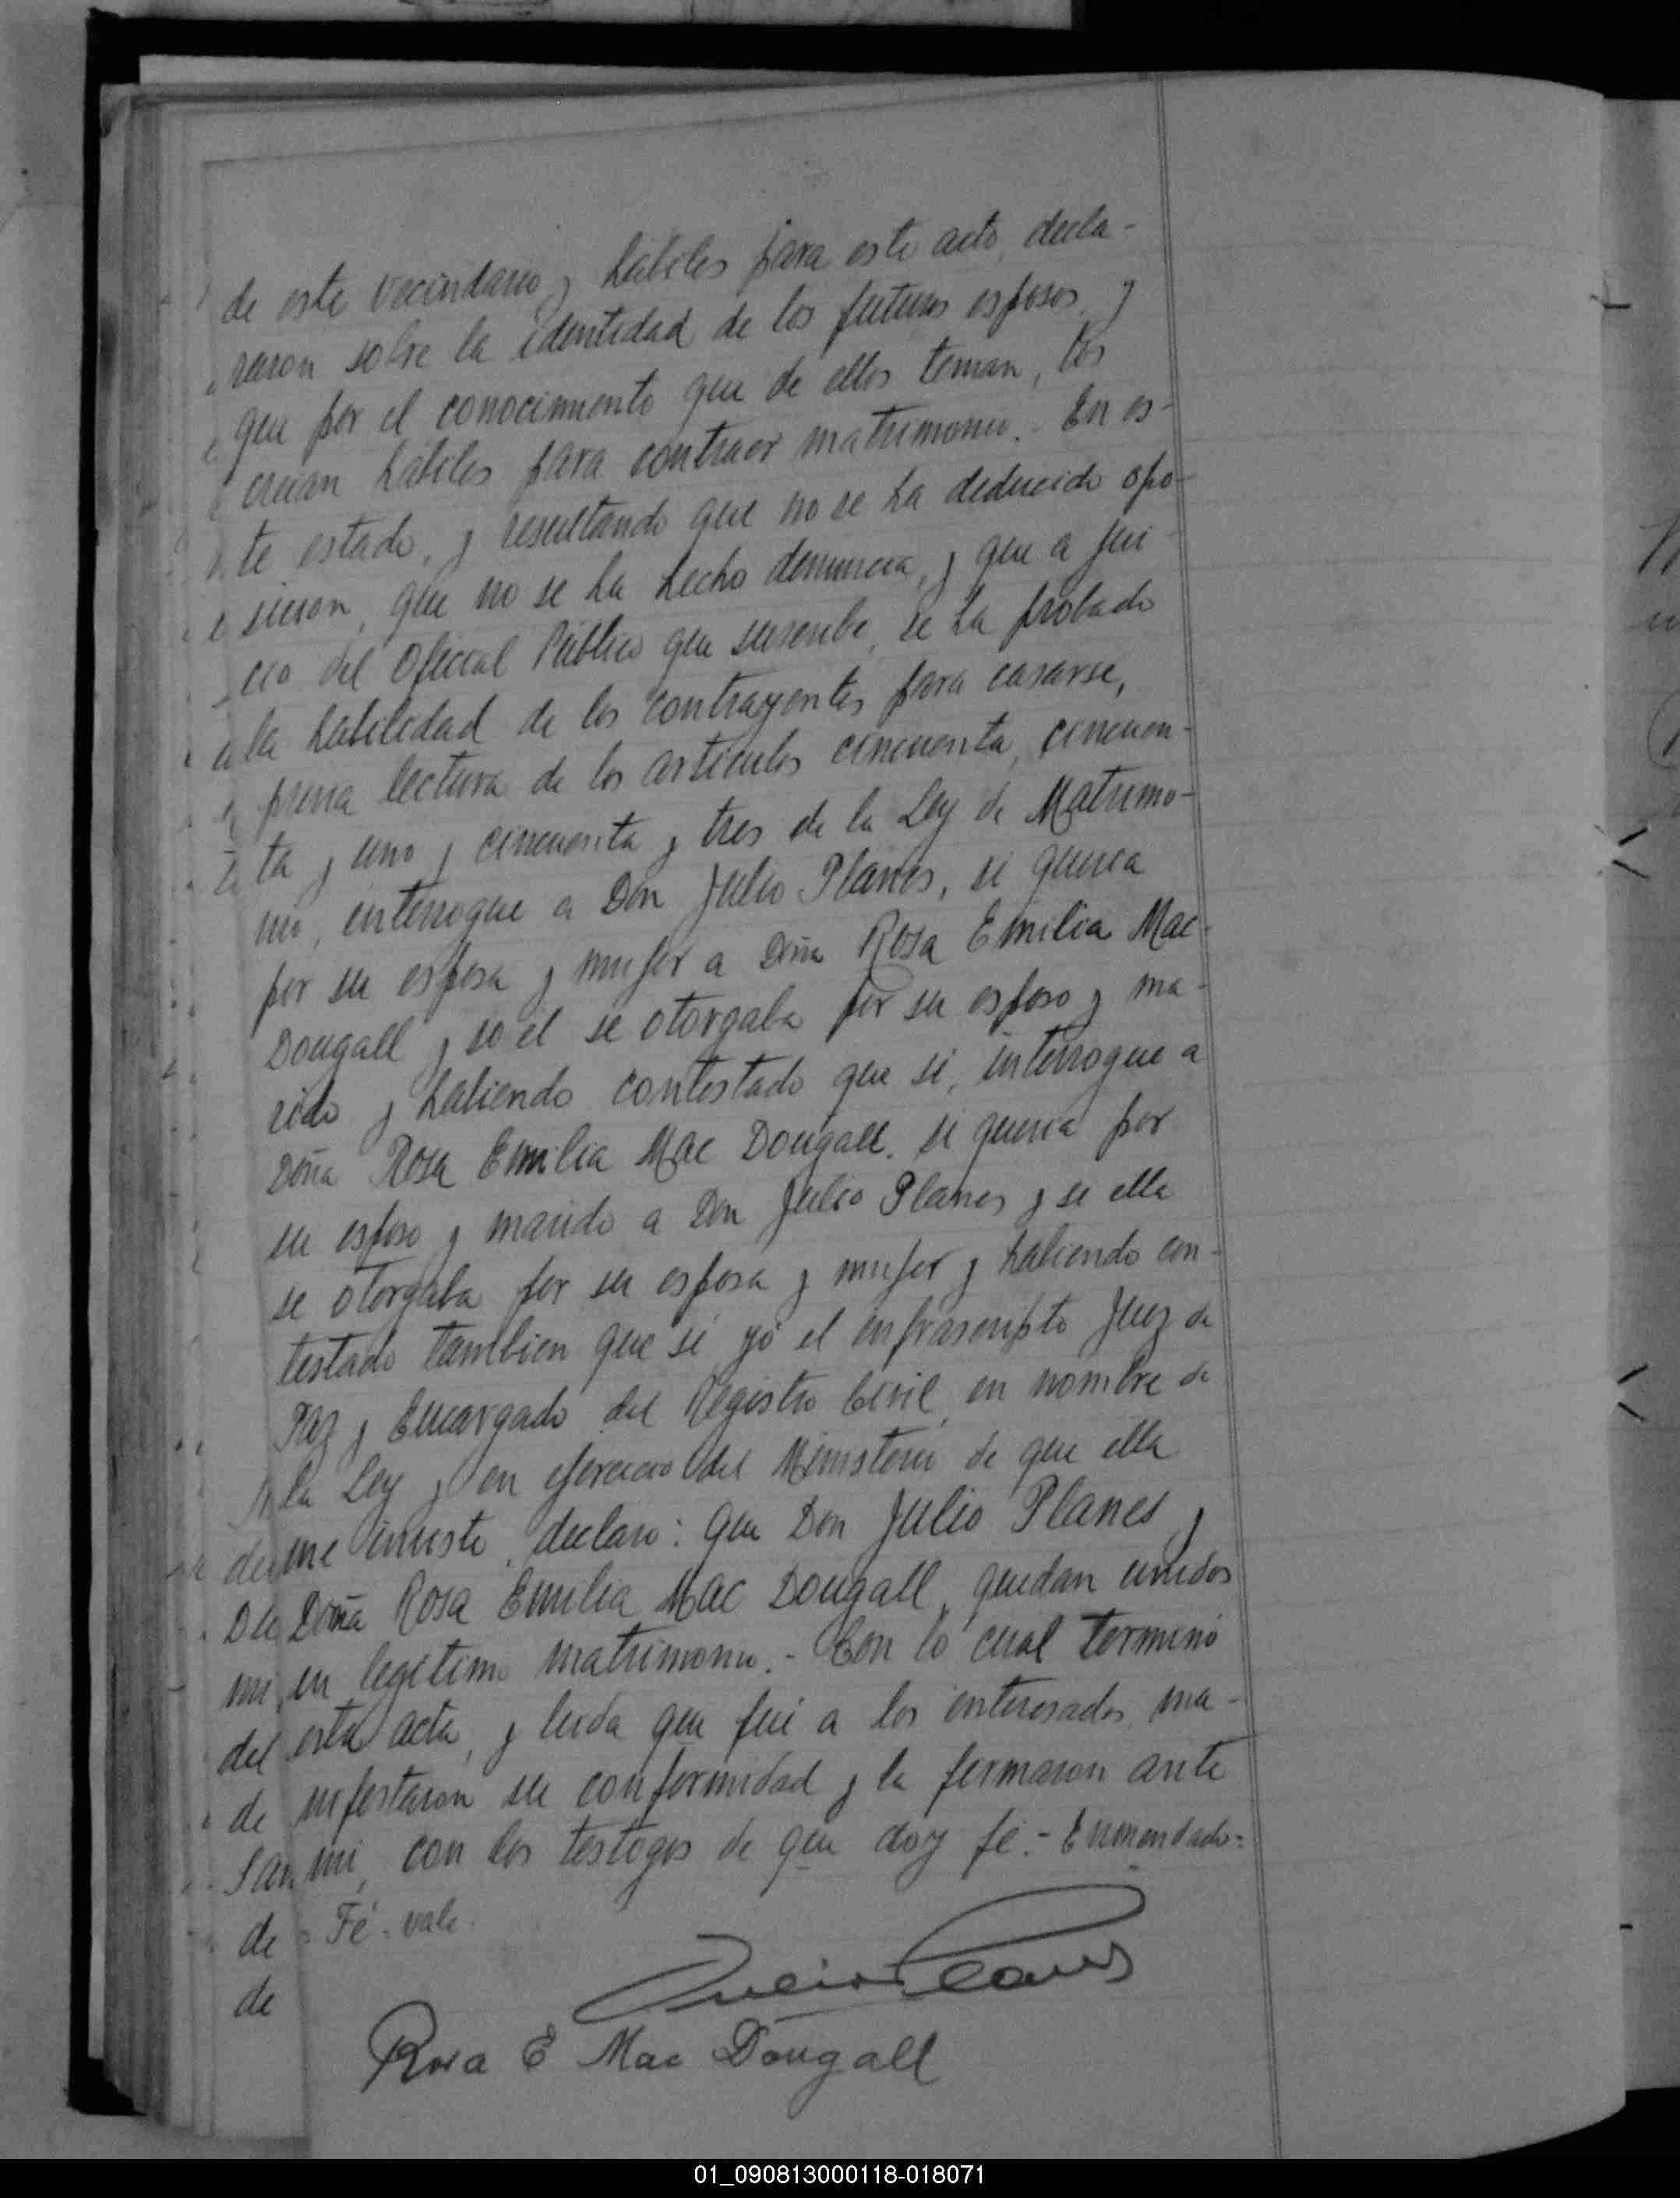 de este vecindario y hábiles para este acto, decla-
raron sobre la identidad de los futuros esposos y
que por el conocimiento que de ellos tenian, los
creian hábiles para contraer matrimonio.- En es-
te estado, y resultando que no se ha deducido opo-
sicion, que no se ha hecho denuncia, y que a jui-
cio del Oficial Público que suscribe, se ha probado
la habilidad de los contrayentes para casarse,
previa lectura de los articulos cincuenta, cincuen-
ta y uno y cincuenta y tres de la Ley de Matrimo-
nio, interrogue a Don Julio Planes, si queria
por su esposa y mujer a Doña Rosa Emilia Mac-
Dougall y so él se otorgaba por su esposo y ma-
rido y habiendo contestado que si, interrogue a
Doña Rosa Emilia Mac Dougall. si queria por
su esposo y marido a Don Julio Planes y se ella
se otorgaba por su esposa y mujer y habiendo con-
testado tambien que si yo el infrascripto Juez de
Paz y Encargado del Registro Civil, en nombre de
la Ley y en ejercicio del Ministerio de que ella
me inviste, declaro: que Don Julio Planes y
Doña Rosa Emilia Mac Dougall, quedan unidos
en legitimo matrimonio.- Con lo cual terminó
esta acta, y leida que fué a los interesados, ma-
nifestaron su conformidad y la firmaron ante
mi, con los testigos de que doy fé.- Enmendado=
= Fé = vale.
de
de
Julio Planes
Rosa E Mac Dougall
01_090813000118-018071